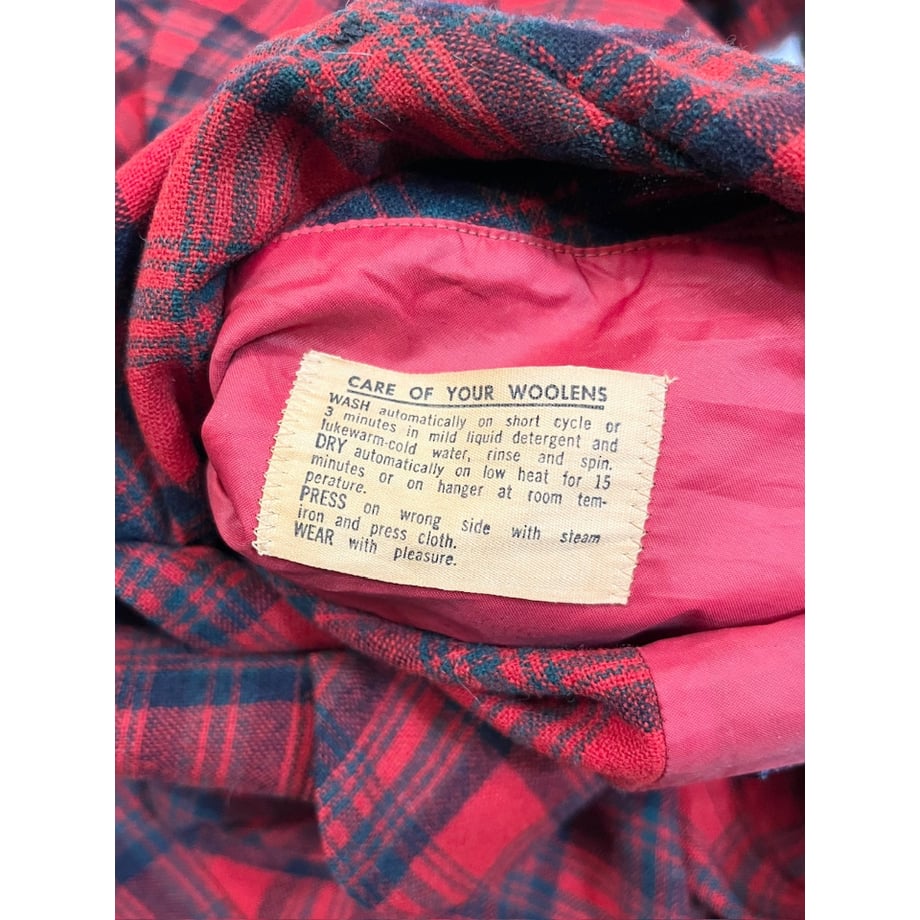 CARE OF YOUR WOOLENS
WASH automatically on short cycle or
3 minutes in mild liquid detergent and
lukewarm-cold water, rinse and spin.
DRY automatically on low heat for 15
minutes or on hanger at room tem-
perature.
PRESS on wrong side with steam
iron and press cloth.
WEAR with pleasure.